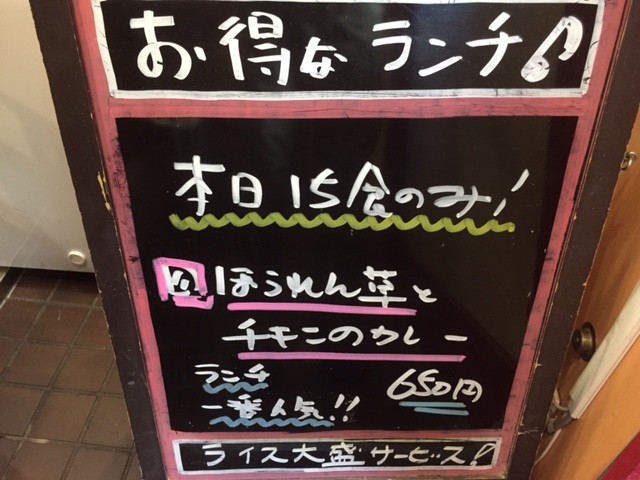 お得なランチ♪
本日15食のみ!
ほうれん草と
チキンのカレー
ランチ
一番人気!! 650円
ライス大盛サービス!